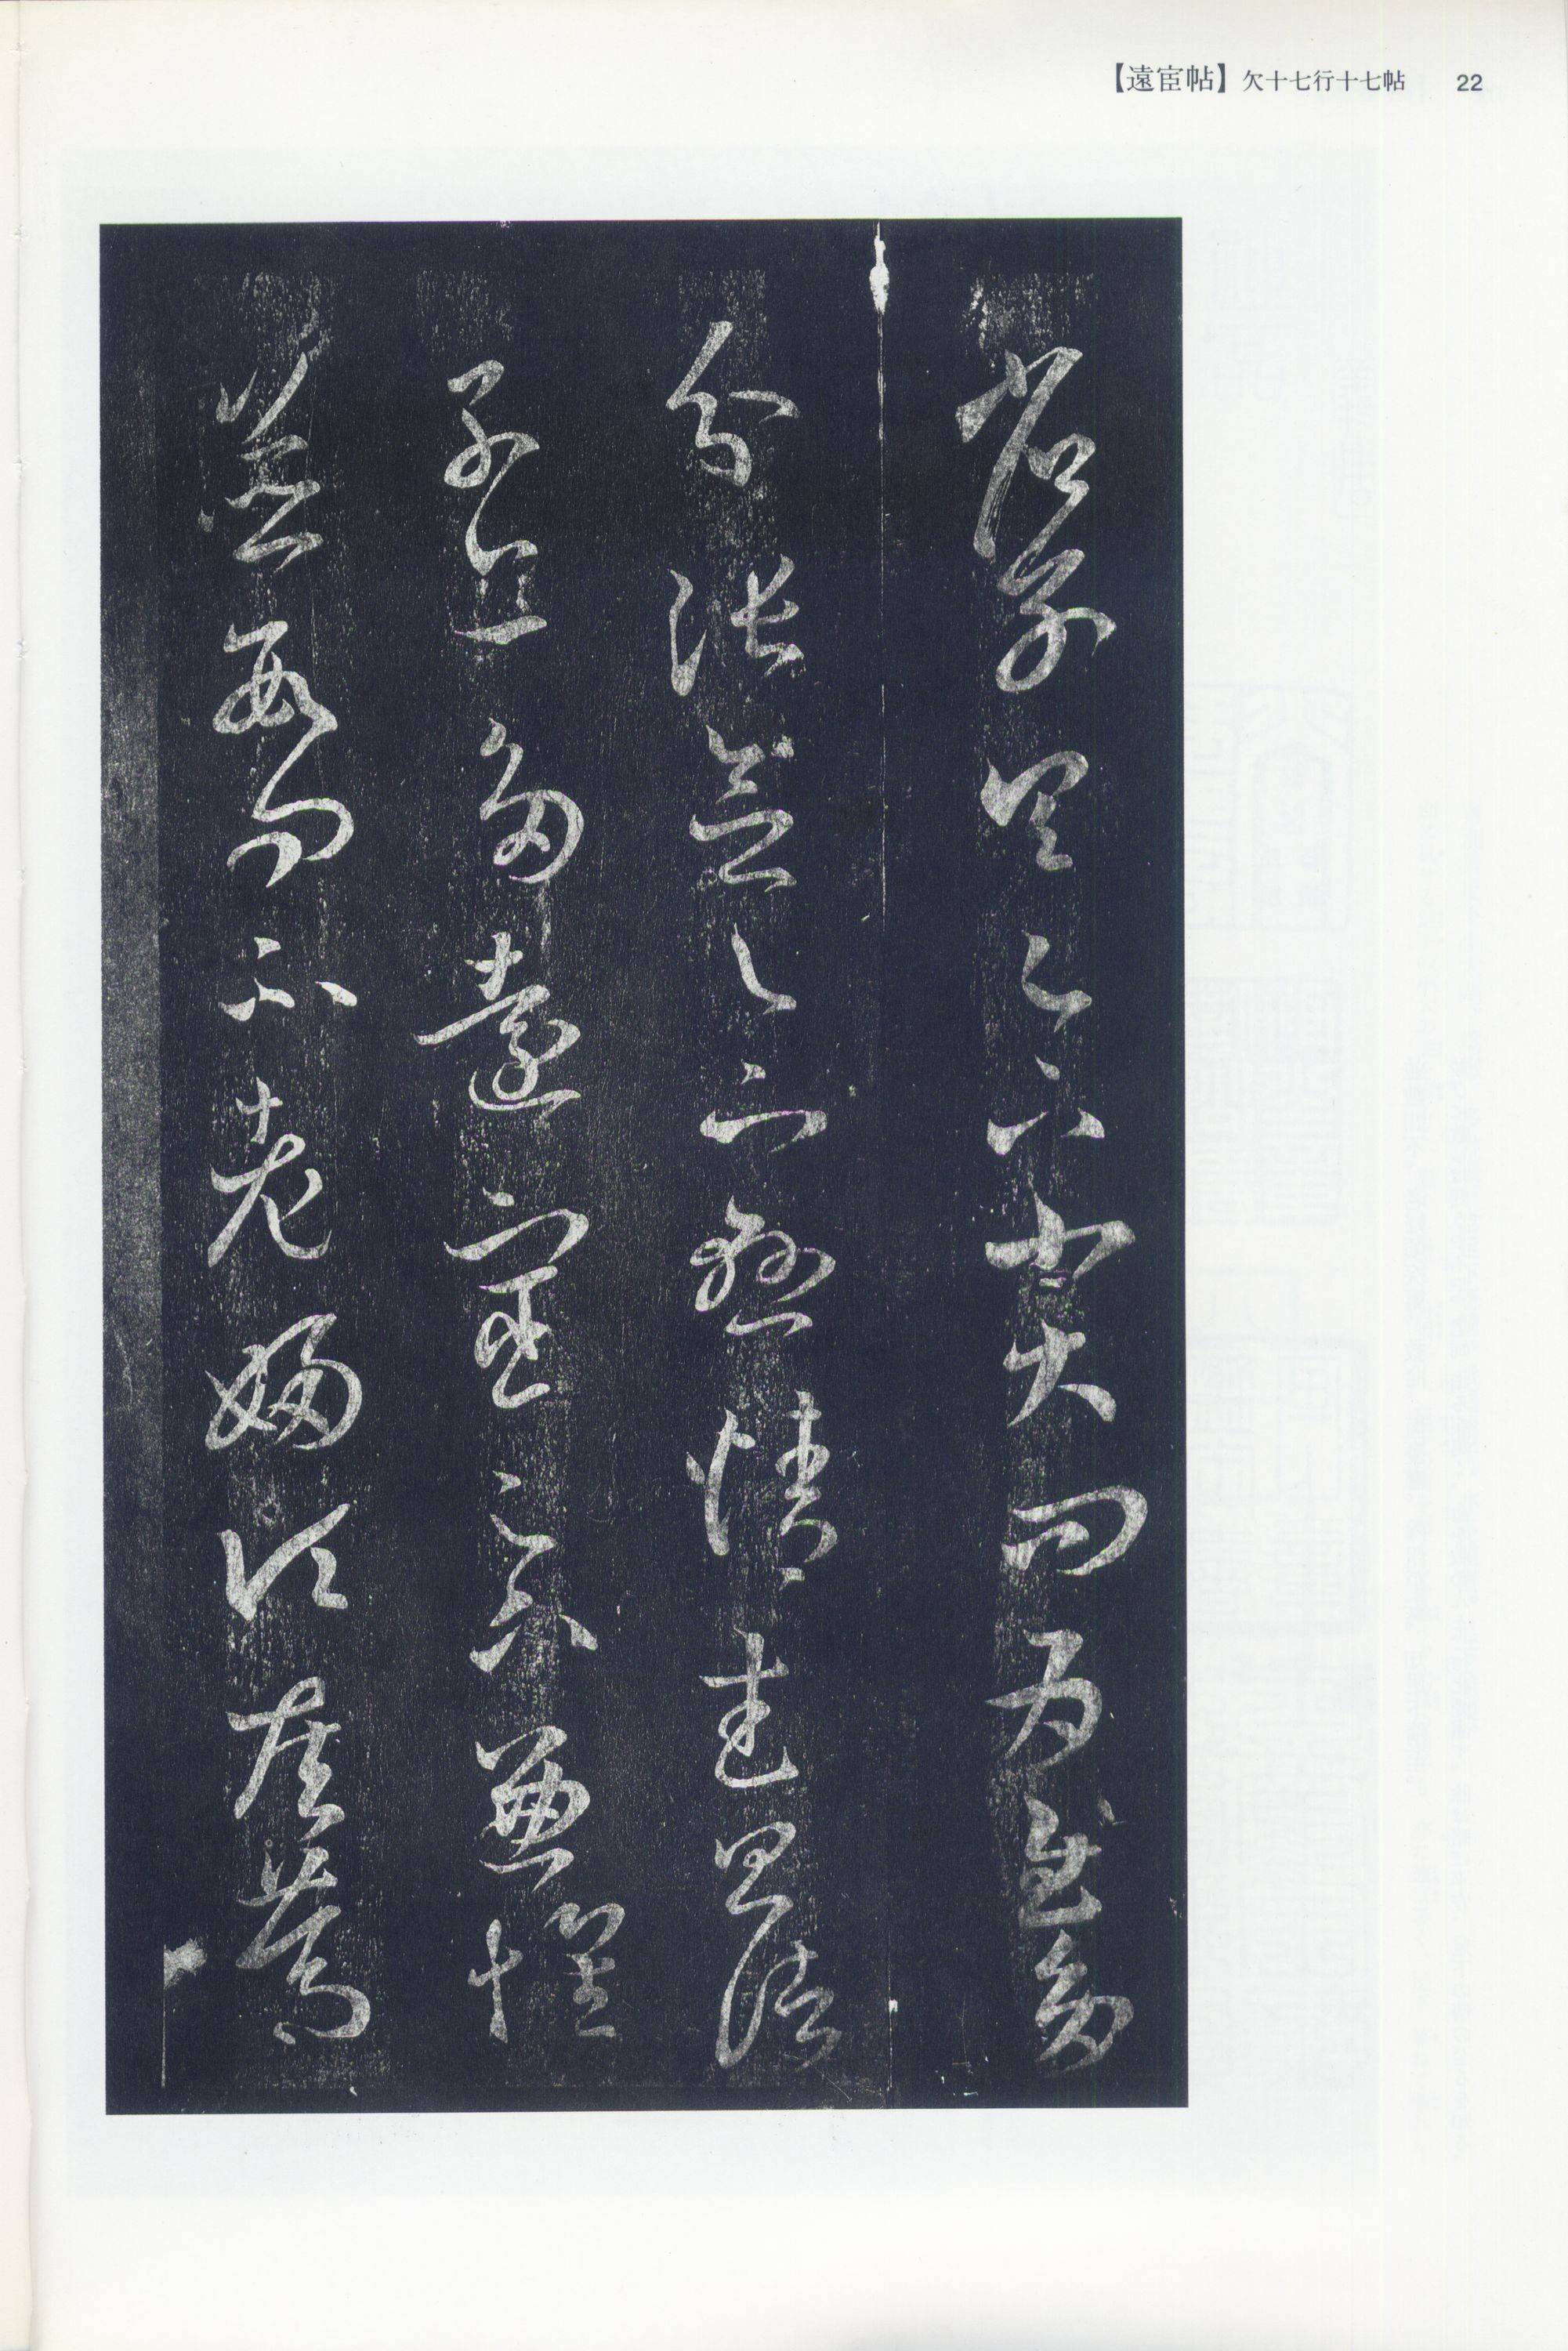 【遠宦帖】欠十七行十七帖 22
省別具足下小大問為慰多
分張念足下懸情武昌諸
子亦多遠宦足下兼懷
並數問不老婦頃疾篤